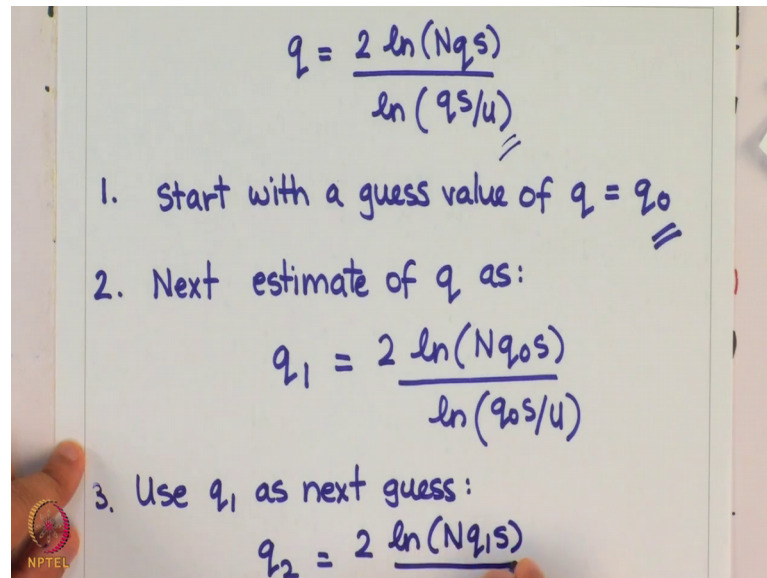 q = 2 ln(Nqs)
ln(qs/u)
1. Start with a guess value of q = q₀
2. Next estimate of q as:
q₁ = 2 ln(Nq₀s)
ln(q₀s/u)
3. Use q₁ as next guess:
q₂ = 2 ln(Nq₁s)
NPTEL